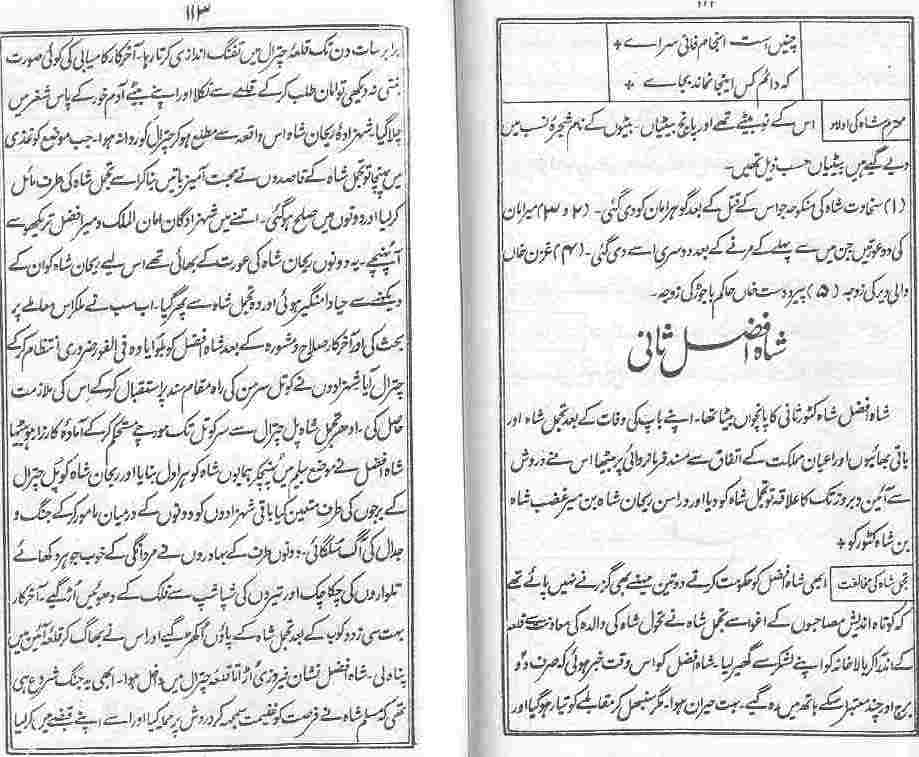 ۱۱۲
چنیں ہست انجام فانی سراے *
کہ دائم کس اینجا نماند بجاے *
محترم شاہ کی اولاد
اس کے نو بیٹے تھے اور پانچ بیٹیاں۔ بیٹوں کے نام شجرۂ نسب میں
دیے گیے ہیں بیٹیاں حسب ذیل تھیں۔
(۱) سخاوت شاہ کی منکوحہ جو اس کے قتل کے بعد گوہر امان کو دی گئی۔ (۲ و ۳) میر امان
کی دو عورتیں جن میں سے پہلے کے مرنے کے بعد دوسری اسے دی گئی۔ (۴) غزن خاں
والی دیر کی زوجہ (۵) پیر دست خاں حاکم باجوڑ کی زوجہ۔
شاہ افضل ثانی
شاہ افضل شاہ کٹور ثانی کا پانچواں بیٹا تھا۔ اپنے باپ کی وفات کے بعد تجمل شاہ اور
باقی بھائیوں اور اعیان مملکت کے اتفاق سے مسند فرمانروائی پر بیٹھا اس نے دروش
سے آئین و بروز تک کا علاقہ تو تجمل شاہ کو دیا اور دراسن ریحان شاہ بن میر غضب شاہ
بن شاہ کٹور کو *
تجمل شاہ کی مخالفت
ابھی شاہ افضل کو حکومت کرتے دو تین مہینے بھی گزرنے نہیں پائے تھے
کہ کوتاہ اندیش مصاحبوں کے اغوا سے تجمل شاہ نے تحول شاہ کی والدہ کی معاونت سے قلعہ
کے اندر آکر بالا خانہ کو اپنے لشکر سے گھیر لیا۔ شاہ افضل کو اس وقت خبر ہوئی کہ صرف دو
برج اور چند معتبل سکے ہاتھ میں رہ گیے۔ بہت حیران ہوا۔ مگر سنبھل کر مقابلے کو تیار ہو گیا اور
۱۱۳
برابر سات دن تک قلعۂ چترال میں تفنگ اندازی کرتا رہا۔ آخر کار کامیابی کی کوئی صورت
بنتی نہ دیکھی تو امان طلب کر کے قلعے سے نکلا اور اپنے بیٹے آدم خور کے پاس شغر میں
چلا گیا۔ شہزادۂ ریحان شاہ اس واقعہ سے مطلع ہو کر چترال کو روانہ ہوا۔ جب موضع کوغذی
میں پہنچا تو تجمل شاہ کے قاصدوں نے محبت آمیز باتیں بنا کر اسے تجمل شاہ کی طرف مائل
کر لیا اور دونوں میں صلح ہو گئی۔ اتنے میں شہزادگان امان الملک و میر افضل تریکھ سے
آپہنچے۔ یہ دونوں ریحان شاہ کی عورت کے بھائی تھے اس لیے ریحان شاہ کو ان کے
دیکھنے سے حیا دامنگیر ہوئی اور وہ تجمل شاہ سے پھر گیا۔ اب سب نے ملکر اس معاملے پر
بحث کی اور آخر کار صلاح و مشورہ کے بعد شاہ افضل کو بلوایا وہ فی الفور ضروری انتظام کر کے
چترال آیا شہزادوں نے کوتل سرمن کی راہ مقام سند پر استقبال کر کے اس کی ملازمت
حاصل کی۔ ادھر تجمل شاہ پل چترال سے سر کوتل تک مورچے مستحکم کر کے آمادۂ کارزار ہو بیٹھا
شاہ افضل نے موضع سیلو میں پہنچکر ہمایوں شاہ کو ہراول بنایا اور ریحان شاہ کو پل چترال
کے برجوں کی طرف متعین کیا باقی شہزادوں کو دونوں کے درمیان مامور کر کے جنگ و
جدال کی آگ سلگائی۔ دونوں طرف کے بہادروں نے مردانگی کے خوب جوہر دکھائے
تلواروں کی چکا چک اور تیروں کی شپا شپ سے فلک کے دھوئیں اڑ گیے۔ آخر کار
بہت سی زد و کوب کے بعد تجمل شاہ کے پاؤں اکھڑ گیے اور اس نے بھاگ کر قلعۂ آئین میں
پناہ لی۔ شاہ افضل نشان فیروزی اڑاتا قلعۂ چترال میں داخل ہوا۔ ابھی یہ جنگ شروع ہی
تھی کہ مسلم شاہ نے فرصت کو غنیمت سمجھ کر دروش پر حملہ کیا اور اسے اپنے قبضے میں کر لیا